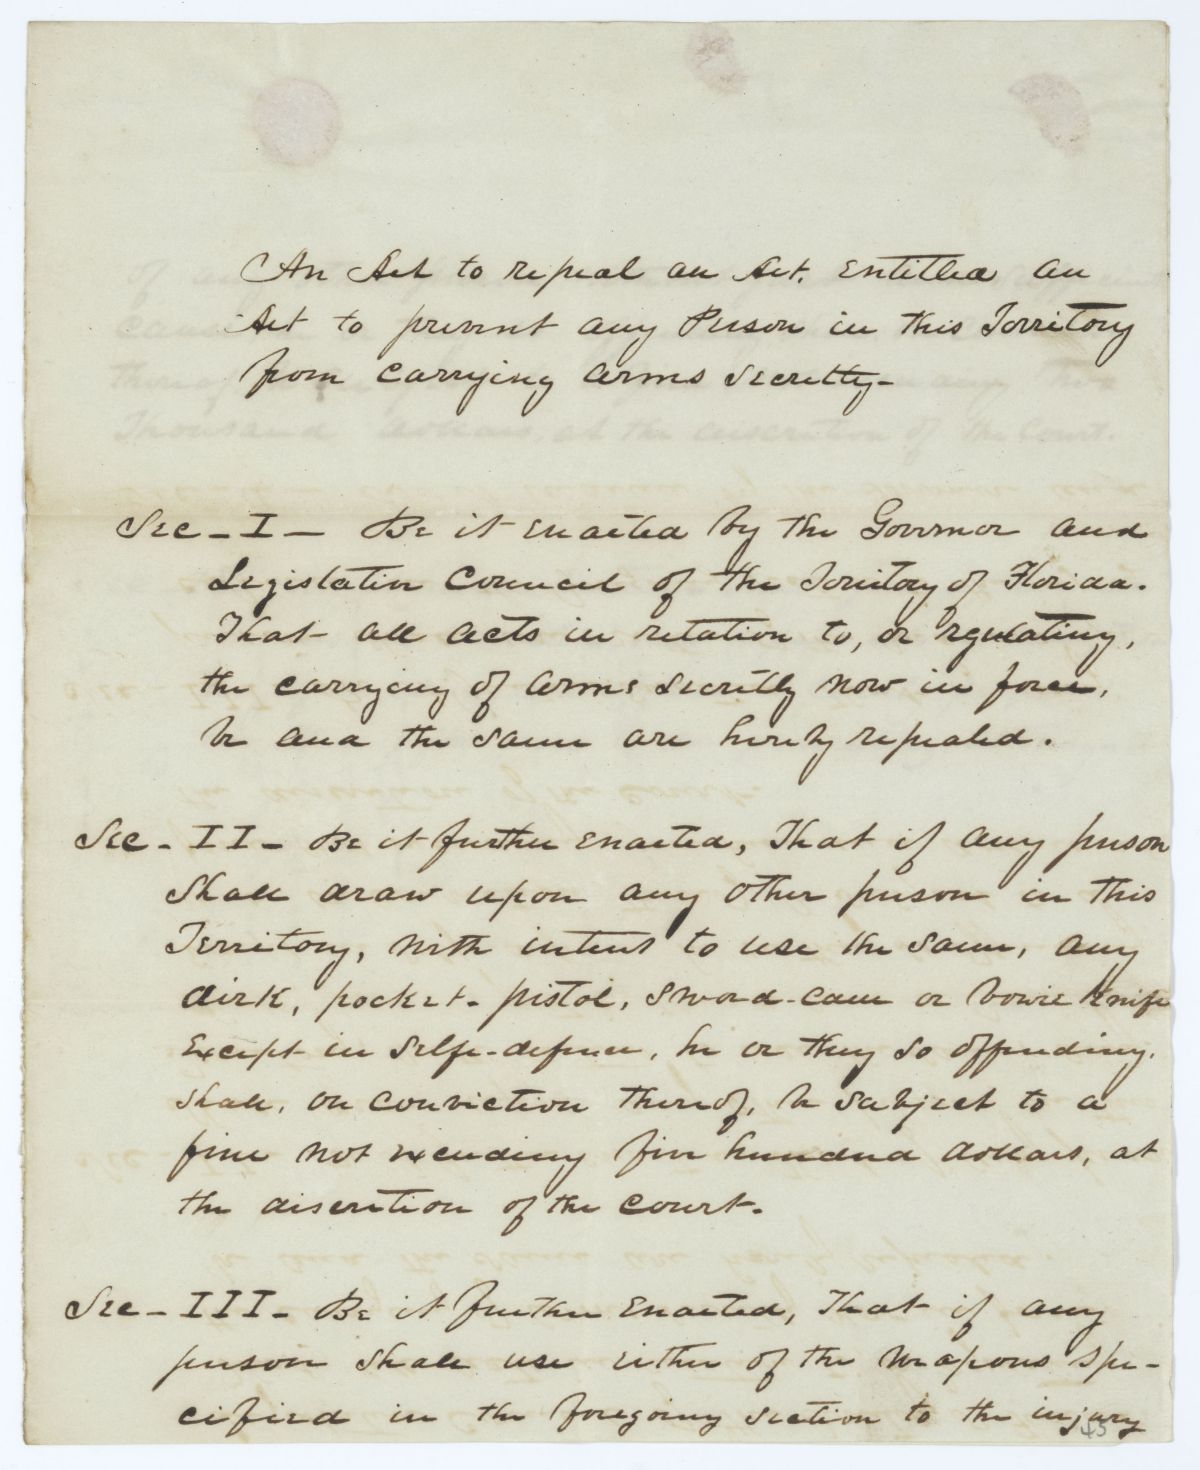 An Act to repeal an Act, entitled an
Act to prevent any Person in this Territory
from carrying arms secretly-
Sec - I - Be it enacted by the Governor and
Legislative Council of the Territory of Florida.
That all acts in relation to, or regulating,
the carrying of arms secretly now in force,
be and the same are hereby repealed.
Sec - II - Be it further enacted, That if any person
shall draw upon any other person in this
Territory, with intent to use the same, any
dirk, pocket-pistol, sword-cane or bowie knife
except in self-defence, he or they so offending,
shall, on conviction thereof, be subject to a
fine not exceeding five hundred dollars, at
the discretion of the court.
Sec - III - Be it further enacted, That if any
person shall use either of the weapons spe-
cified in the foregoing section to the injury